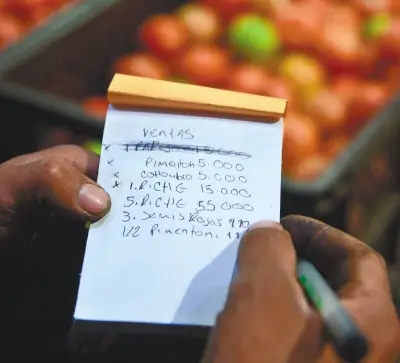 ventas
x Pimenton 5.000
x cohombro 5.000
x 1. R.CHG 15.000
5. R.CHG 55.000
3. Semis Rojas
1/2 Pimenton.